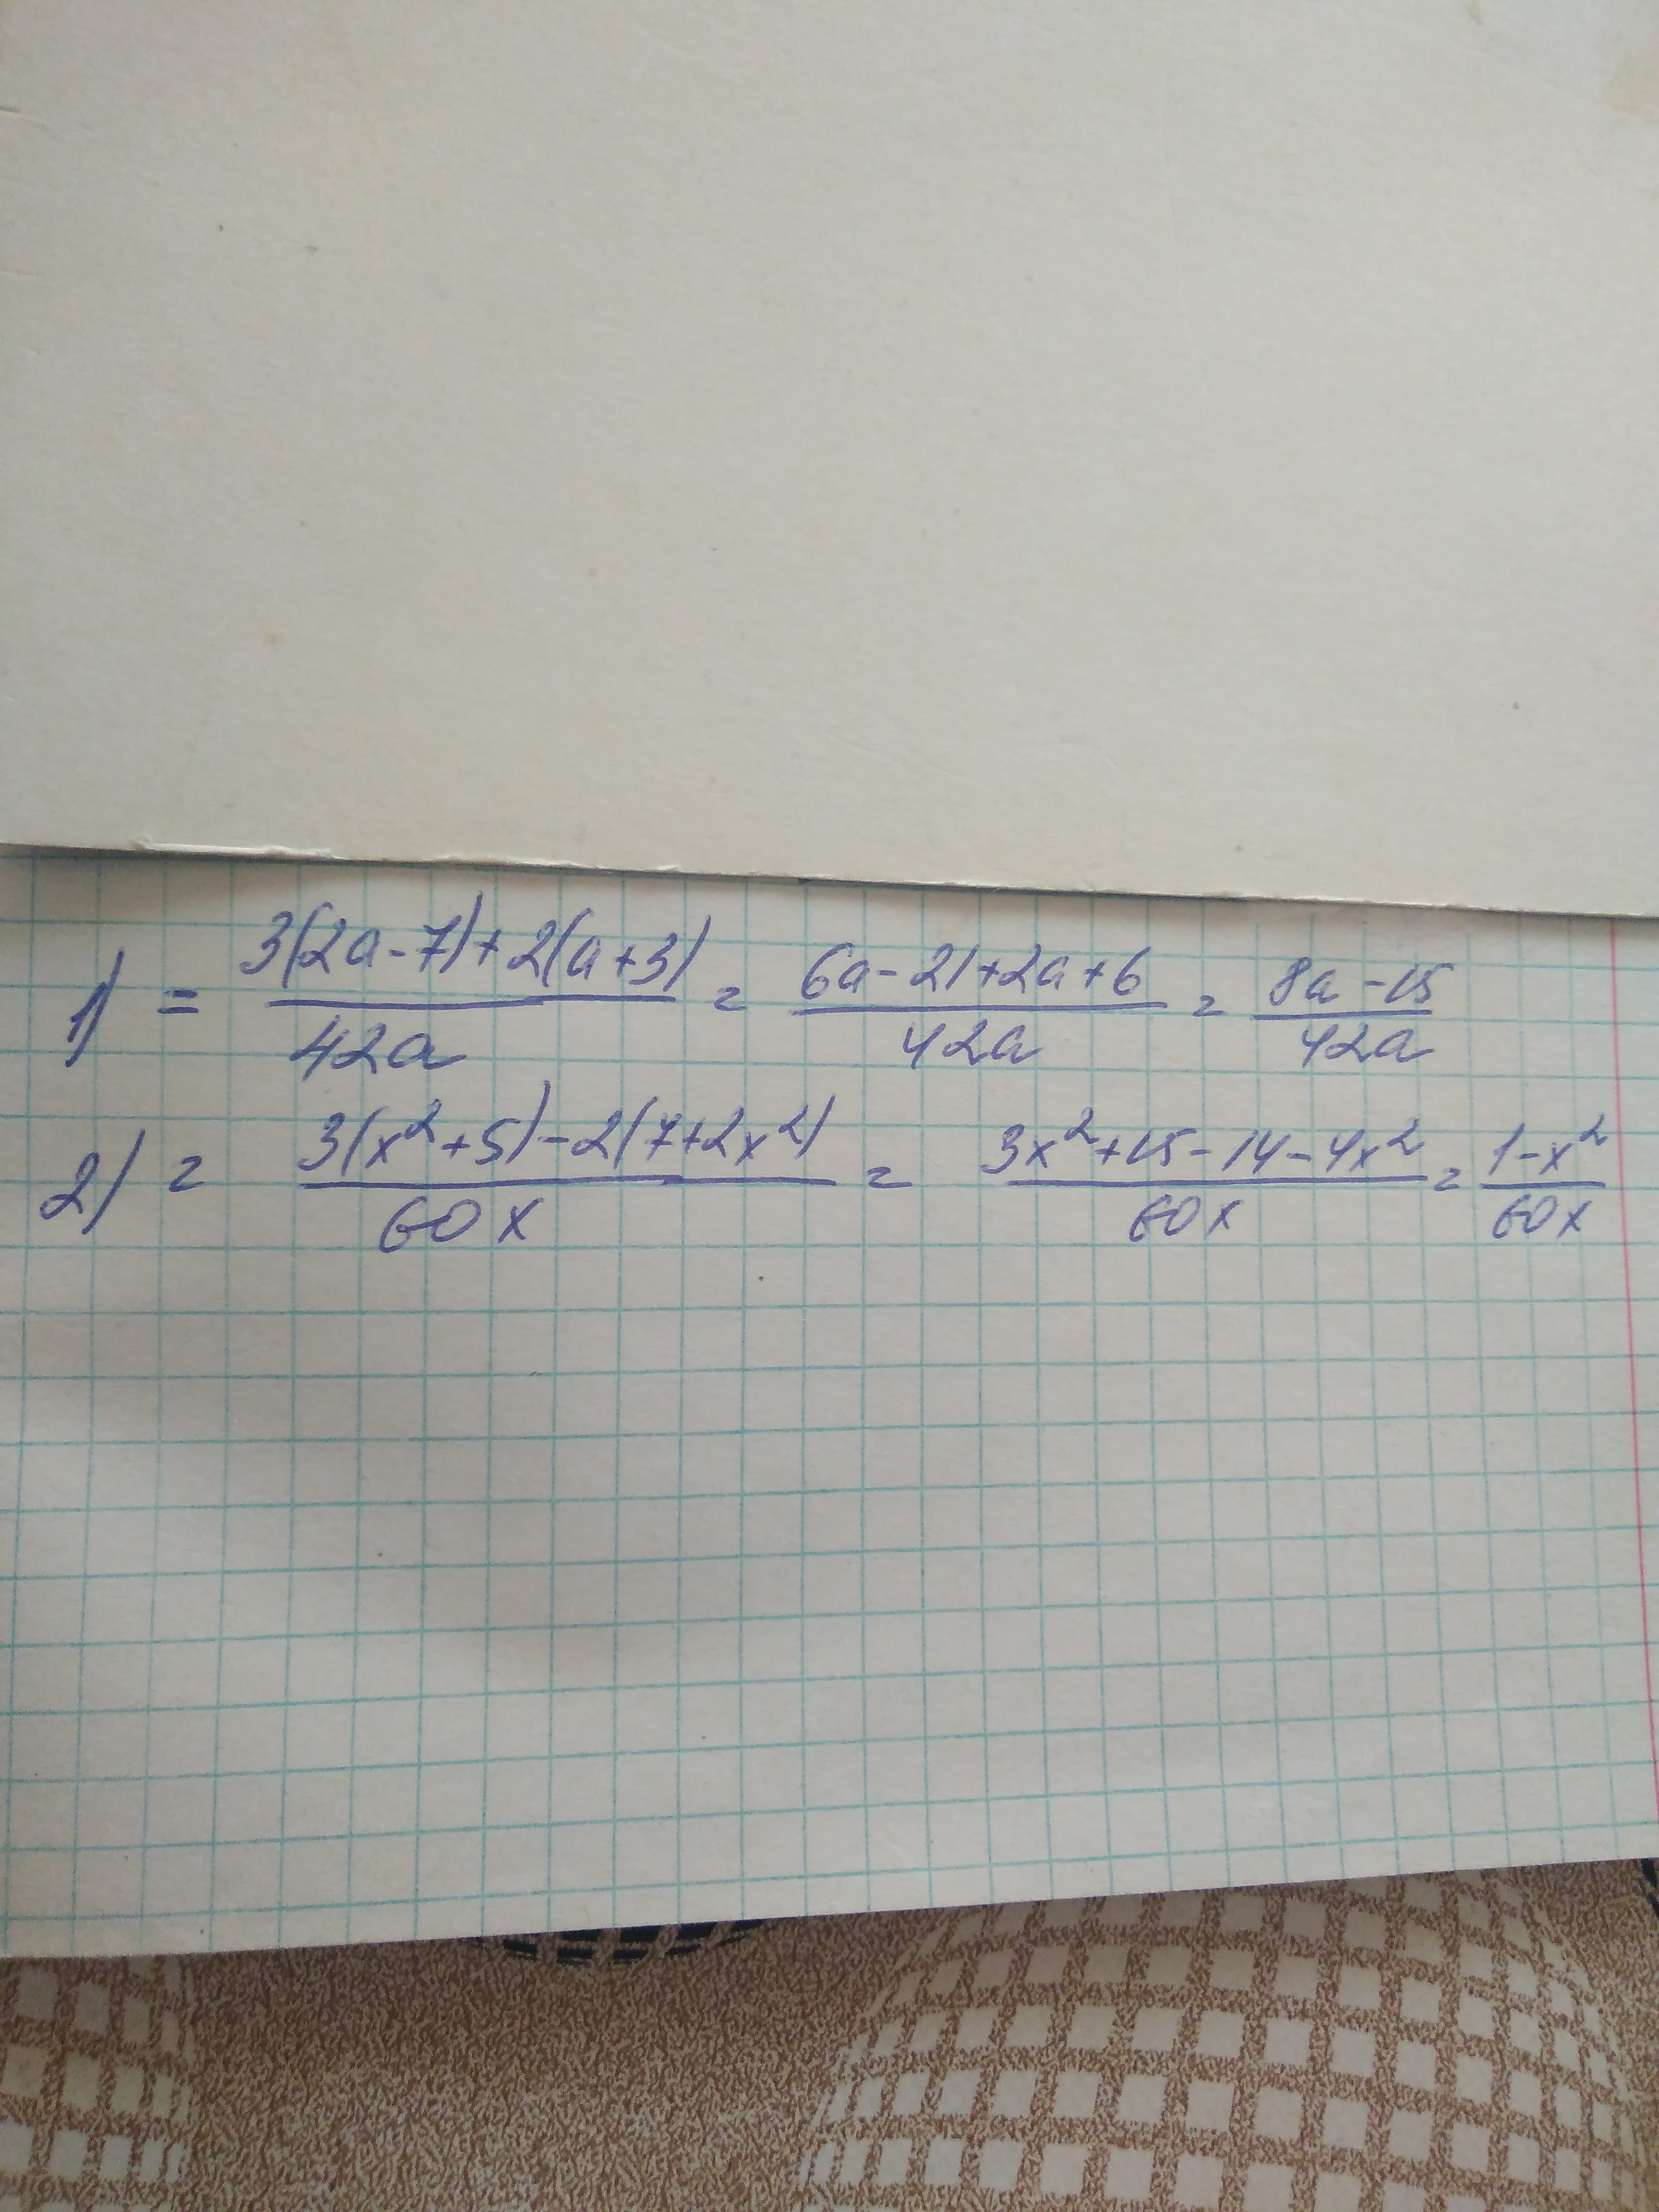 1) = 3(2a-7)+2(a+3)/42a = 6a-21+2a+6/42a = 8a-15/42a
2) = 3(x²+5)-2(7+2x²)/60x = 3x²+15-14-4x²/60x = 1-x²/60x